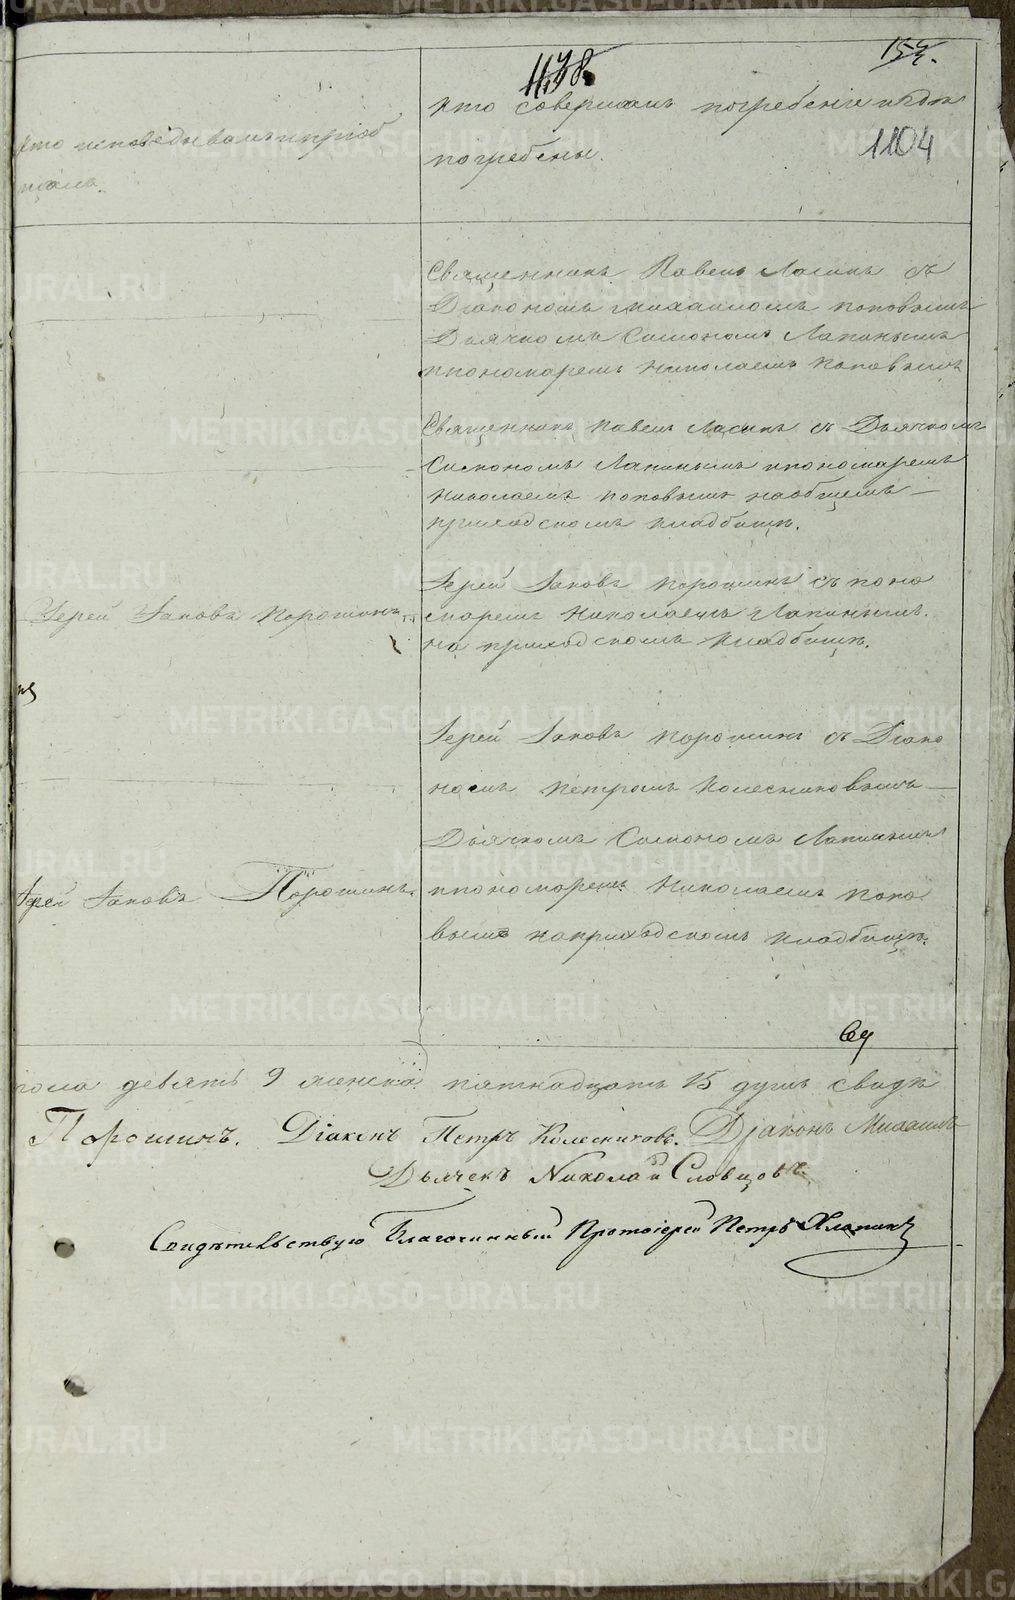 1138.
154.
1104
кто исповѣдывалъ и пріоб
щалъ.
кто совершалъ погребеніе и гдѣ
погребены.
Священникъ Павелъ Ласинъ съ
Діакономъ Михаиломъ Поповымъ
Дьячкомъ Симономъ Лапинымъ
пономаремъ Николаемъ Поповымъ
Священникъ Павелъ Ласинъ съ Дьячкомъ
Симономъ Лапинымъ пономаремъ
Николаемъ Поповымъ на общемъ
приходскомъ кладбищѣ.
Іерей Іаковъ Порошинъ
Іерей Іаковъ Порошинъ съ поно
маремъ Николаемъ Лапинымъ
на приходскомъ кладбищѣ.
Іерей Іаковъ Порошинъ съ Діако
номъ Петромъ Колесниковымъ
Дьячкомъ Симономъ Лапинымъ
Іерей Іаковъ Порошинъ.
пономаремъ Николаемъ Попо
вымъ на приходскомъ кладбищѣ.
пола девять 9 женска пятнадцать 15 душъ свидѣ
Порошинъ. Діаконъ Петръ Колесниковъ. Діаконъ Михаилъ
Дьячекъ Николай Словцовъ.
Свидѣтельствую Благочинный Протоіерей Петръ Хлопинъ
METRIKI.GASO-URAL.RU